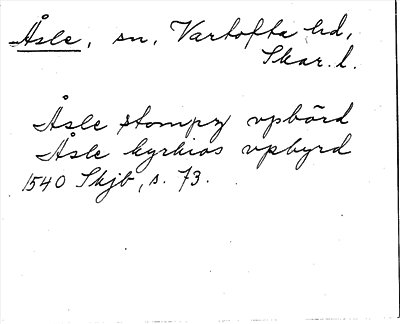 Åsle, sn, Vartofta hd,
Skar. l.
Åsle stompz vpbörd
Åsle kyrkios vpbyrd
1540 Skjb, s. 73.